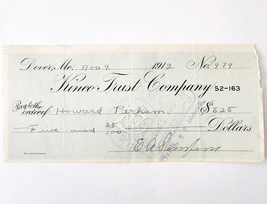 Dover, Me. Nov 9 1912 No. 979
Kineo Trust Company 52-163
Pay to the
order of Howard Perham $5.25
Five and 25/100 Dollars